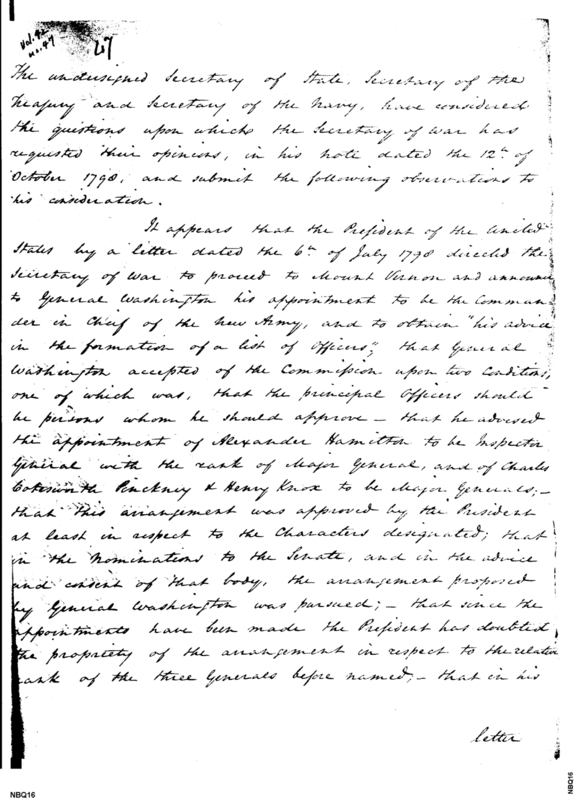 Vol. 42
no. 47
47
The undersigned Secretary of State, Secretary of the
Treasury and Secretary of the Navy, have considered
the questions upon which the Secretary of War has
requested their opinions, in his note dated the 12th of
October 1798, and submit the following observations to
his consideration.
It appears that the President of the United
States by a letter dated the 6th of July 1798 directed the
Secretary of War to proceed to Mount Vernon and announce
to General Washington his appointment to be the Comman-
der in Chief of the new Army, and to obtain "his advice
in the formation of a list of Officers", that General
Washington accepted of the Commission upon two Conditions,
one of which was, that the principal Officers should
be persons whom he should approve – that he advised
the appointment of Alexander Hamilton to be Inspector
General with the rank of Major General, and of Charles
Cotesworth Pinckney & Henry Knox to be Major Generals; –
that this arrangement was approved by the President
at least in respect to the Characters designated; that
in the Nominations to the Senate, and in the advice
and consent of that body, the arrangement proposed
by General Washington was pursued; – that since the
appointments have been made the President has doubted
the propriety of the arrangement in respect to the relative
rank of the three Generals before named, – that in his
letter
NBQ16
NBQ16